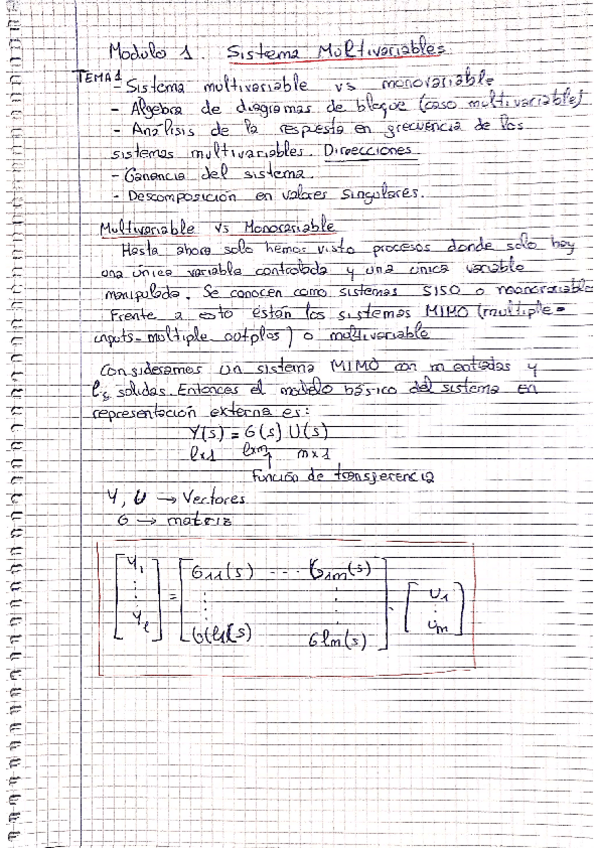 Modulo 1. Sistema Multivariables
TEMA 1
- Sistema multivariable vs monovariable
- Algebra de diagramas de bloque (caso multivariable)
- Analisis de la respuesta en frecuencia de los
sistemas multivariables. Direecciones
- Ganancia del sistema.
- Descomposición en valores singulares.
Multivariable vs Monovariable
Hasta ahora solo hemos visto procesos donde solo hay
una única variable controlada y una unica variable
manipulada. Se conocen como sistemas SISO o monovariable
Frente a esto están los sistemas MIMO (multiple-
inputs-multiple outplos) o multivariable
Consideramos un sistema MIMO con m entradas y
ls salidas. Entonces el modelo básico del sistema en
representación externa es:
Y(s) = G(s) U(s)
lx1 lxm mx1
Función de transferencia
Y, U → Vectores
G → matriz
[Y1 ⋮ Yl] = [G11(s) ---- G1m(s) ⋮ ⋮ Gl1(s) Glm(s)] · [U1 ⋮ Um]